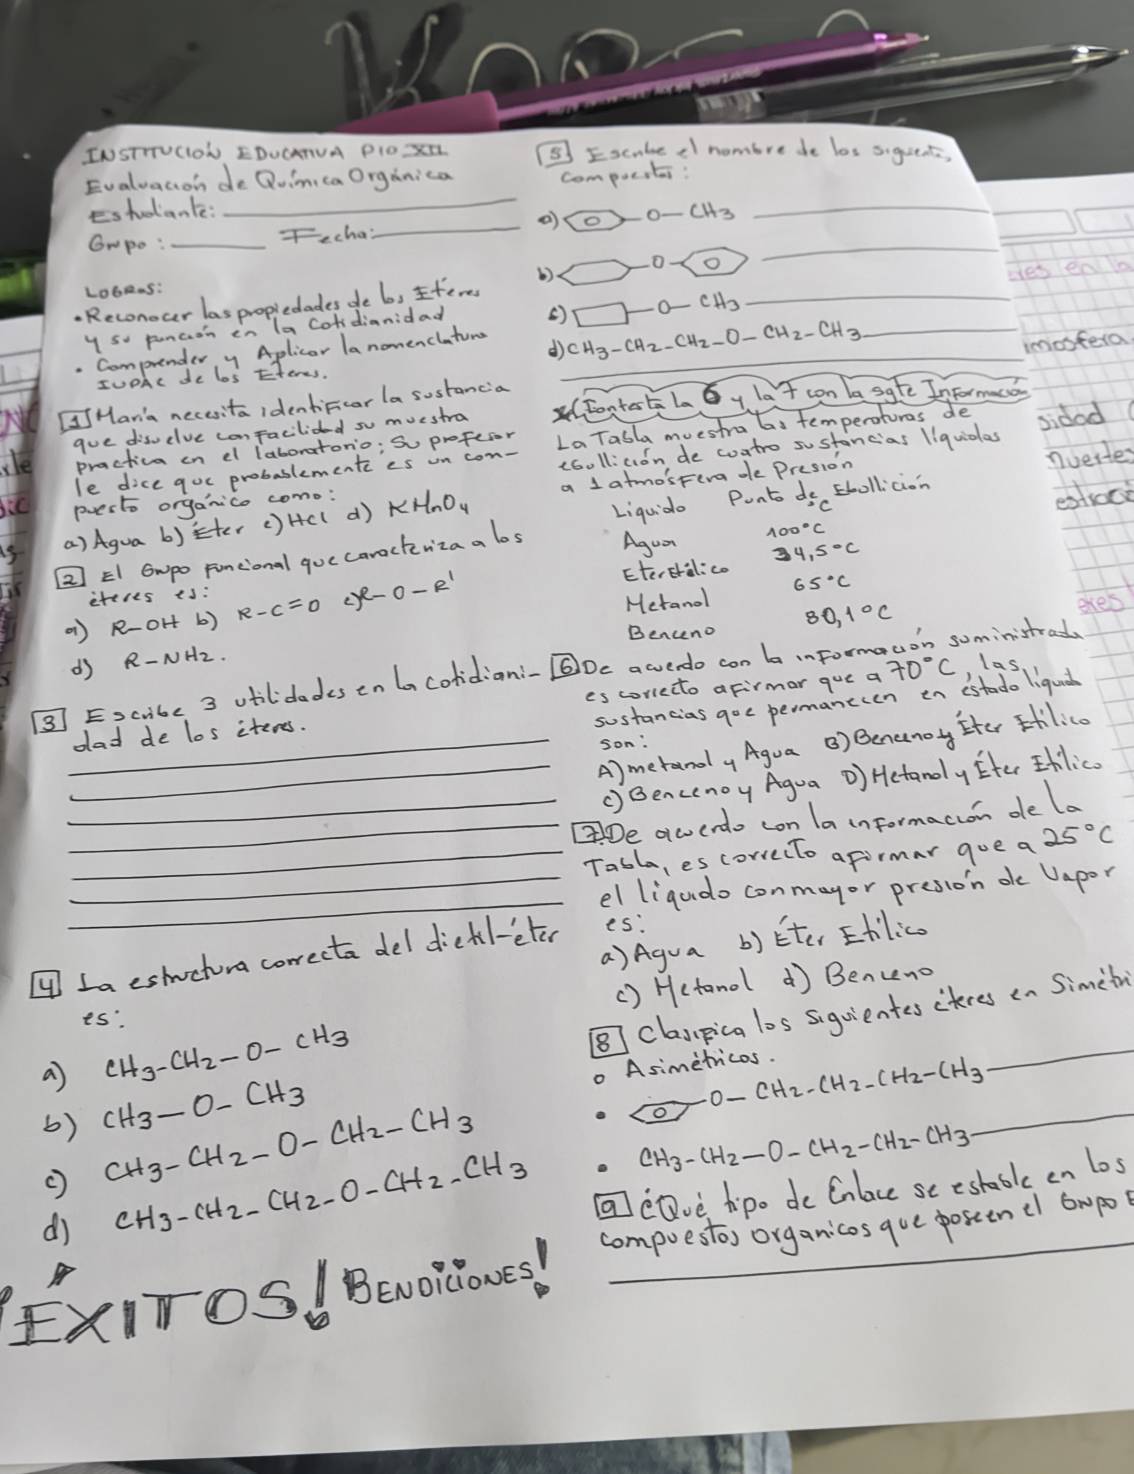 INSTITUCIÓN EDUCATIVA PIO XII
Evaluación de Química Orgánica
Estudiante:
Grupo: Fecha:
LOGROS:
• Reconocer las propiedades de los Éteres
y su función en la Cotidianidad
• Comprender y Aplicar la nomenclatura
IUPAC de los Éteres.
1 María necesita identificar la sustancia
que disuelve con facilidad su muestra
practica en el laboratorio; su profesor
le dice que probablemente es un com-
puesto orgánico como:
a) Agua b) Éter c) HCl d) KMnO4
2 El Grupo funcional que caracteriza a los
éteres es:
a) R-OH b) R-C=O c) R-O-R'
d) R-NH2.
3 Escribe 3 utilidades en la cotidiani-
dad de los éteres.
4 La estructura correcta del dietil-éter
es:
a) CH3-CH2-O-CH3
b) CH3-O-CH3
c) CH3-CH2-O-CH2-CH3
d) CH3-CH2-CH2-O-CH2-CH3
ÉXITOS! BENDICIONES!
5 Escribe el nombre de los siguientes
compuestos:
a) O-CH3
b) O
c) O-CH3
d) CH3-CH2-CH2-O-CH2-CH3
Contesta la 6 y la 7 con la sgte Información
La Tabla muestra las temperaturas de
ebullición de cuatro sustancias líquidas
a 1 atmósfera de Presión
Líquido Punto de Ebullición
°C
Agua 100°C
Eter Etílico 34,5°C
Metanol 65°C
Benceno 80,1°C
6 De acuerdo con la información suministrada
es correcto afirmar que a 70°C, las
sustancias que permanecen en estado líquido
son:
A) metanol y Agua B) Benceno y Éter Etílico
C) Benceno y Agua D) Metanol y Éter Etílico
7 De acuerdo con la información de la
Tabla, es correcto afirmar que a 25°C
el líquido con mayor presión de Vapor
es:
a) Agua b) Éter Etílico
c) Metanol d) Benceno
8 Clasifica los siguientes éteres en Simétri
o Asimétricos.
• O-CH2-CH2-CH2-CH3
• CH3-CH2-O-CH2-CH2-CH3
9 ¿Qué tipo de Enlace se establece en los
compuestos organicos que poseen el Grupo
en la
sidad